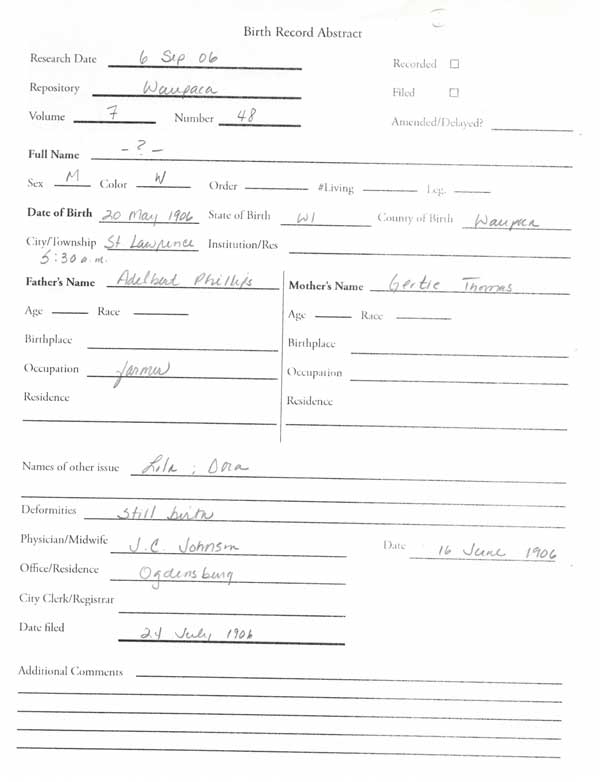 Birth Record Abstract
Research Date 6 Sep 06 Recorded
Repository Waupaca Filed
Volume 7 Number 48 Amended/Delayed?
Full Name - ? -
Sex M Color W Order #Living Leg.
Date of Birth 20 May 1906 State of Birth WI County of Birth Waupaca
City/Township St Lawrence Institution/Res
5:30 a.m.
Father's Name Adelbert Phillips Mother's Name Gertie Thomas
Age Race Age Race
Birthplace Birthplace
Occupation farmer Occupation
Residence Residence
Names of other issue Lila ; Dora
Deformities Still birth
Physician/Midwife J.C. Johnson Date 16 June 1906
Office/Residence Ogdensburg
City Clerk/Registrar
Date filed 24 July 1906
Additional Comments